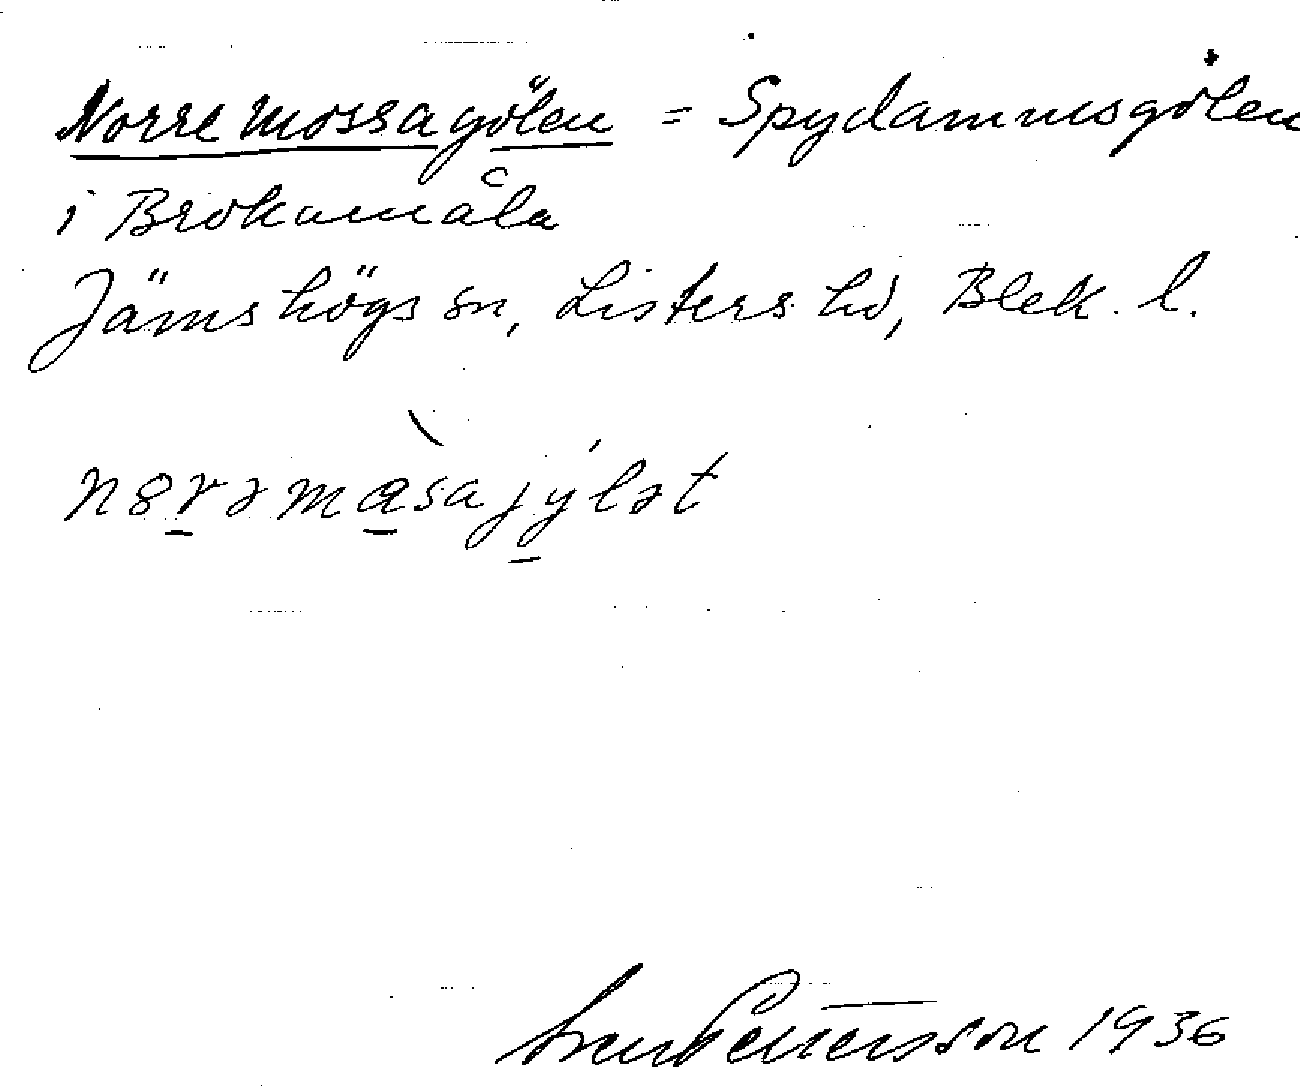 Norremossagölen = Spydammsgölen
i Brokamåla
Jämshögs sn, Listers hd, Blek. l.
n8rəma̱sajy̱lət
Sven Pettersson 1936